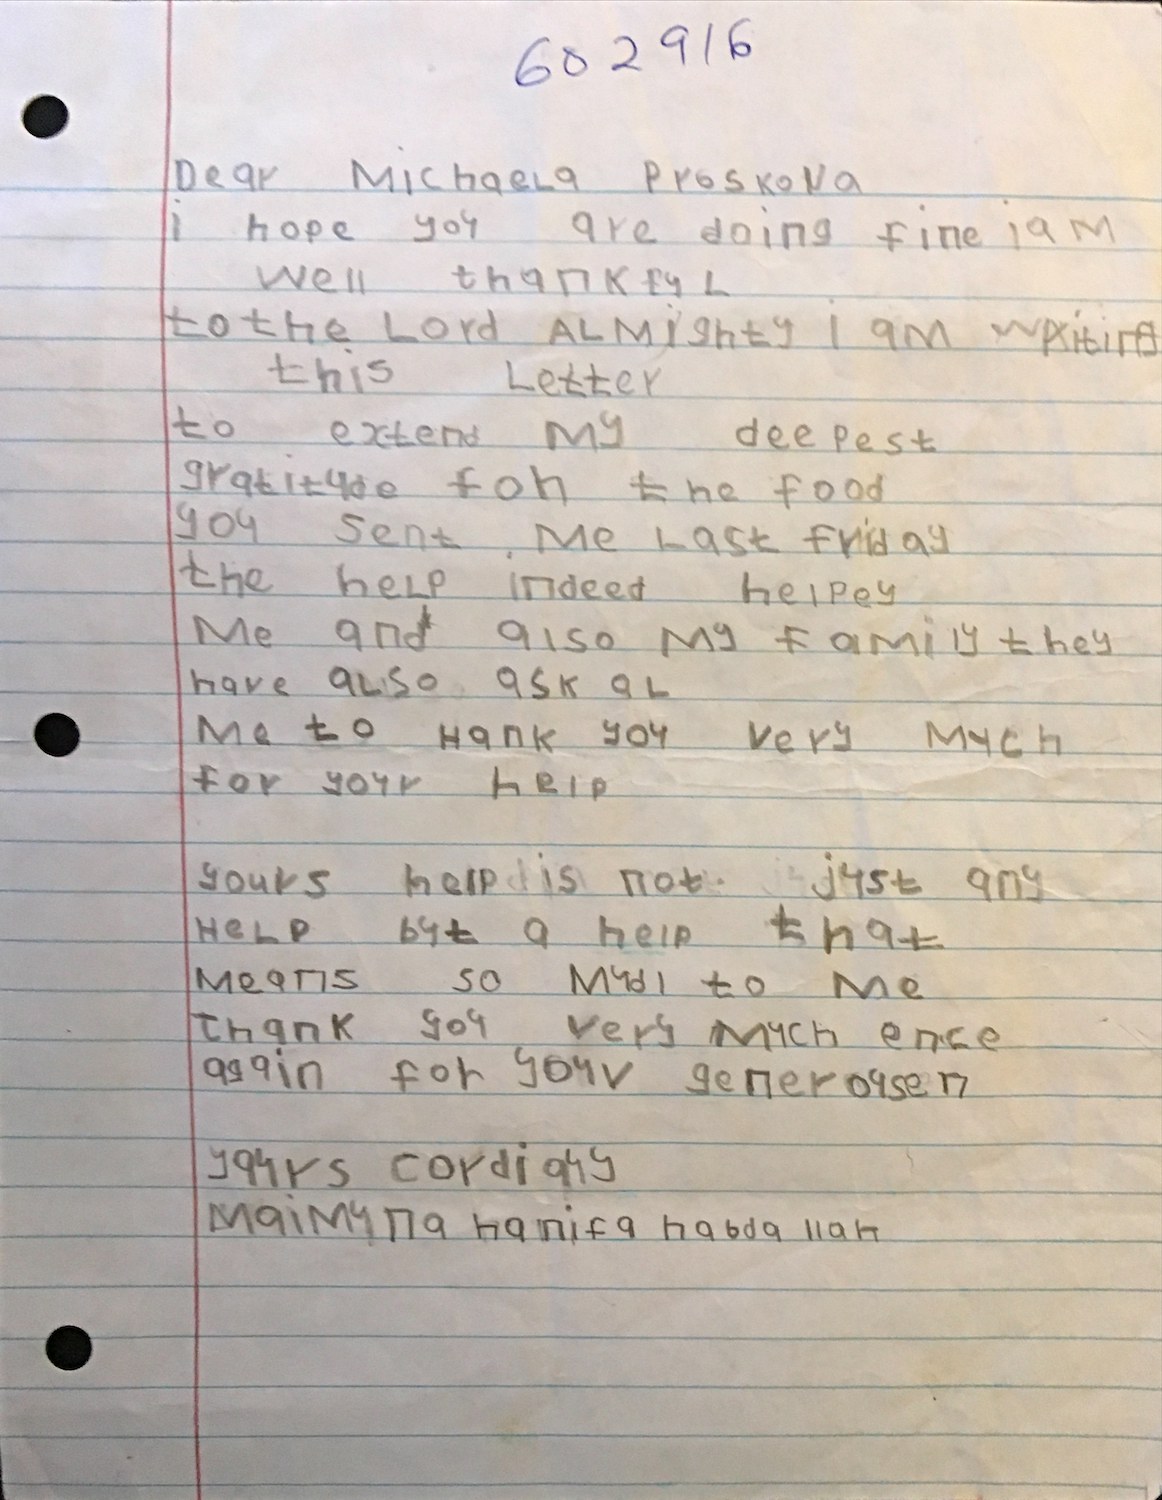 602916
Dear Michaela Proskova
i hope you are doing fine iam
well thankful
to the Lord ALMighty I am writing
this Letter
to extend My deepest
gratitude foh the food
you sent. Me Last friday
the help indeed helpey
Me and also My family they
have also ask al
Me to Hank you very Much
for your help
yours help is not. just any
HeLp but a help that
Means so Mudl to Me
thank you very Much ence
again foh your generousen
yaurs cordiauy
Maimuna hanifa habdallah